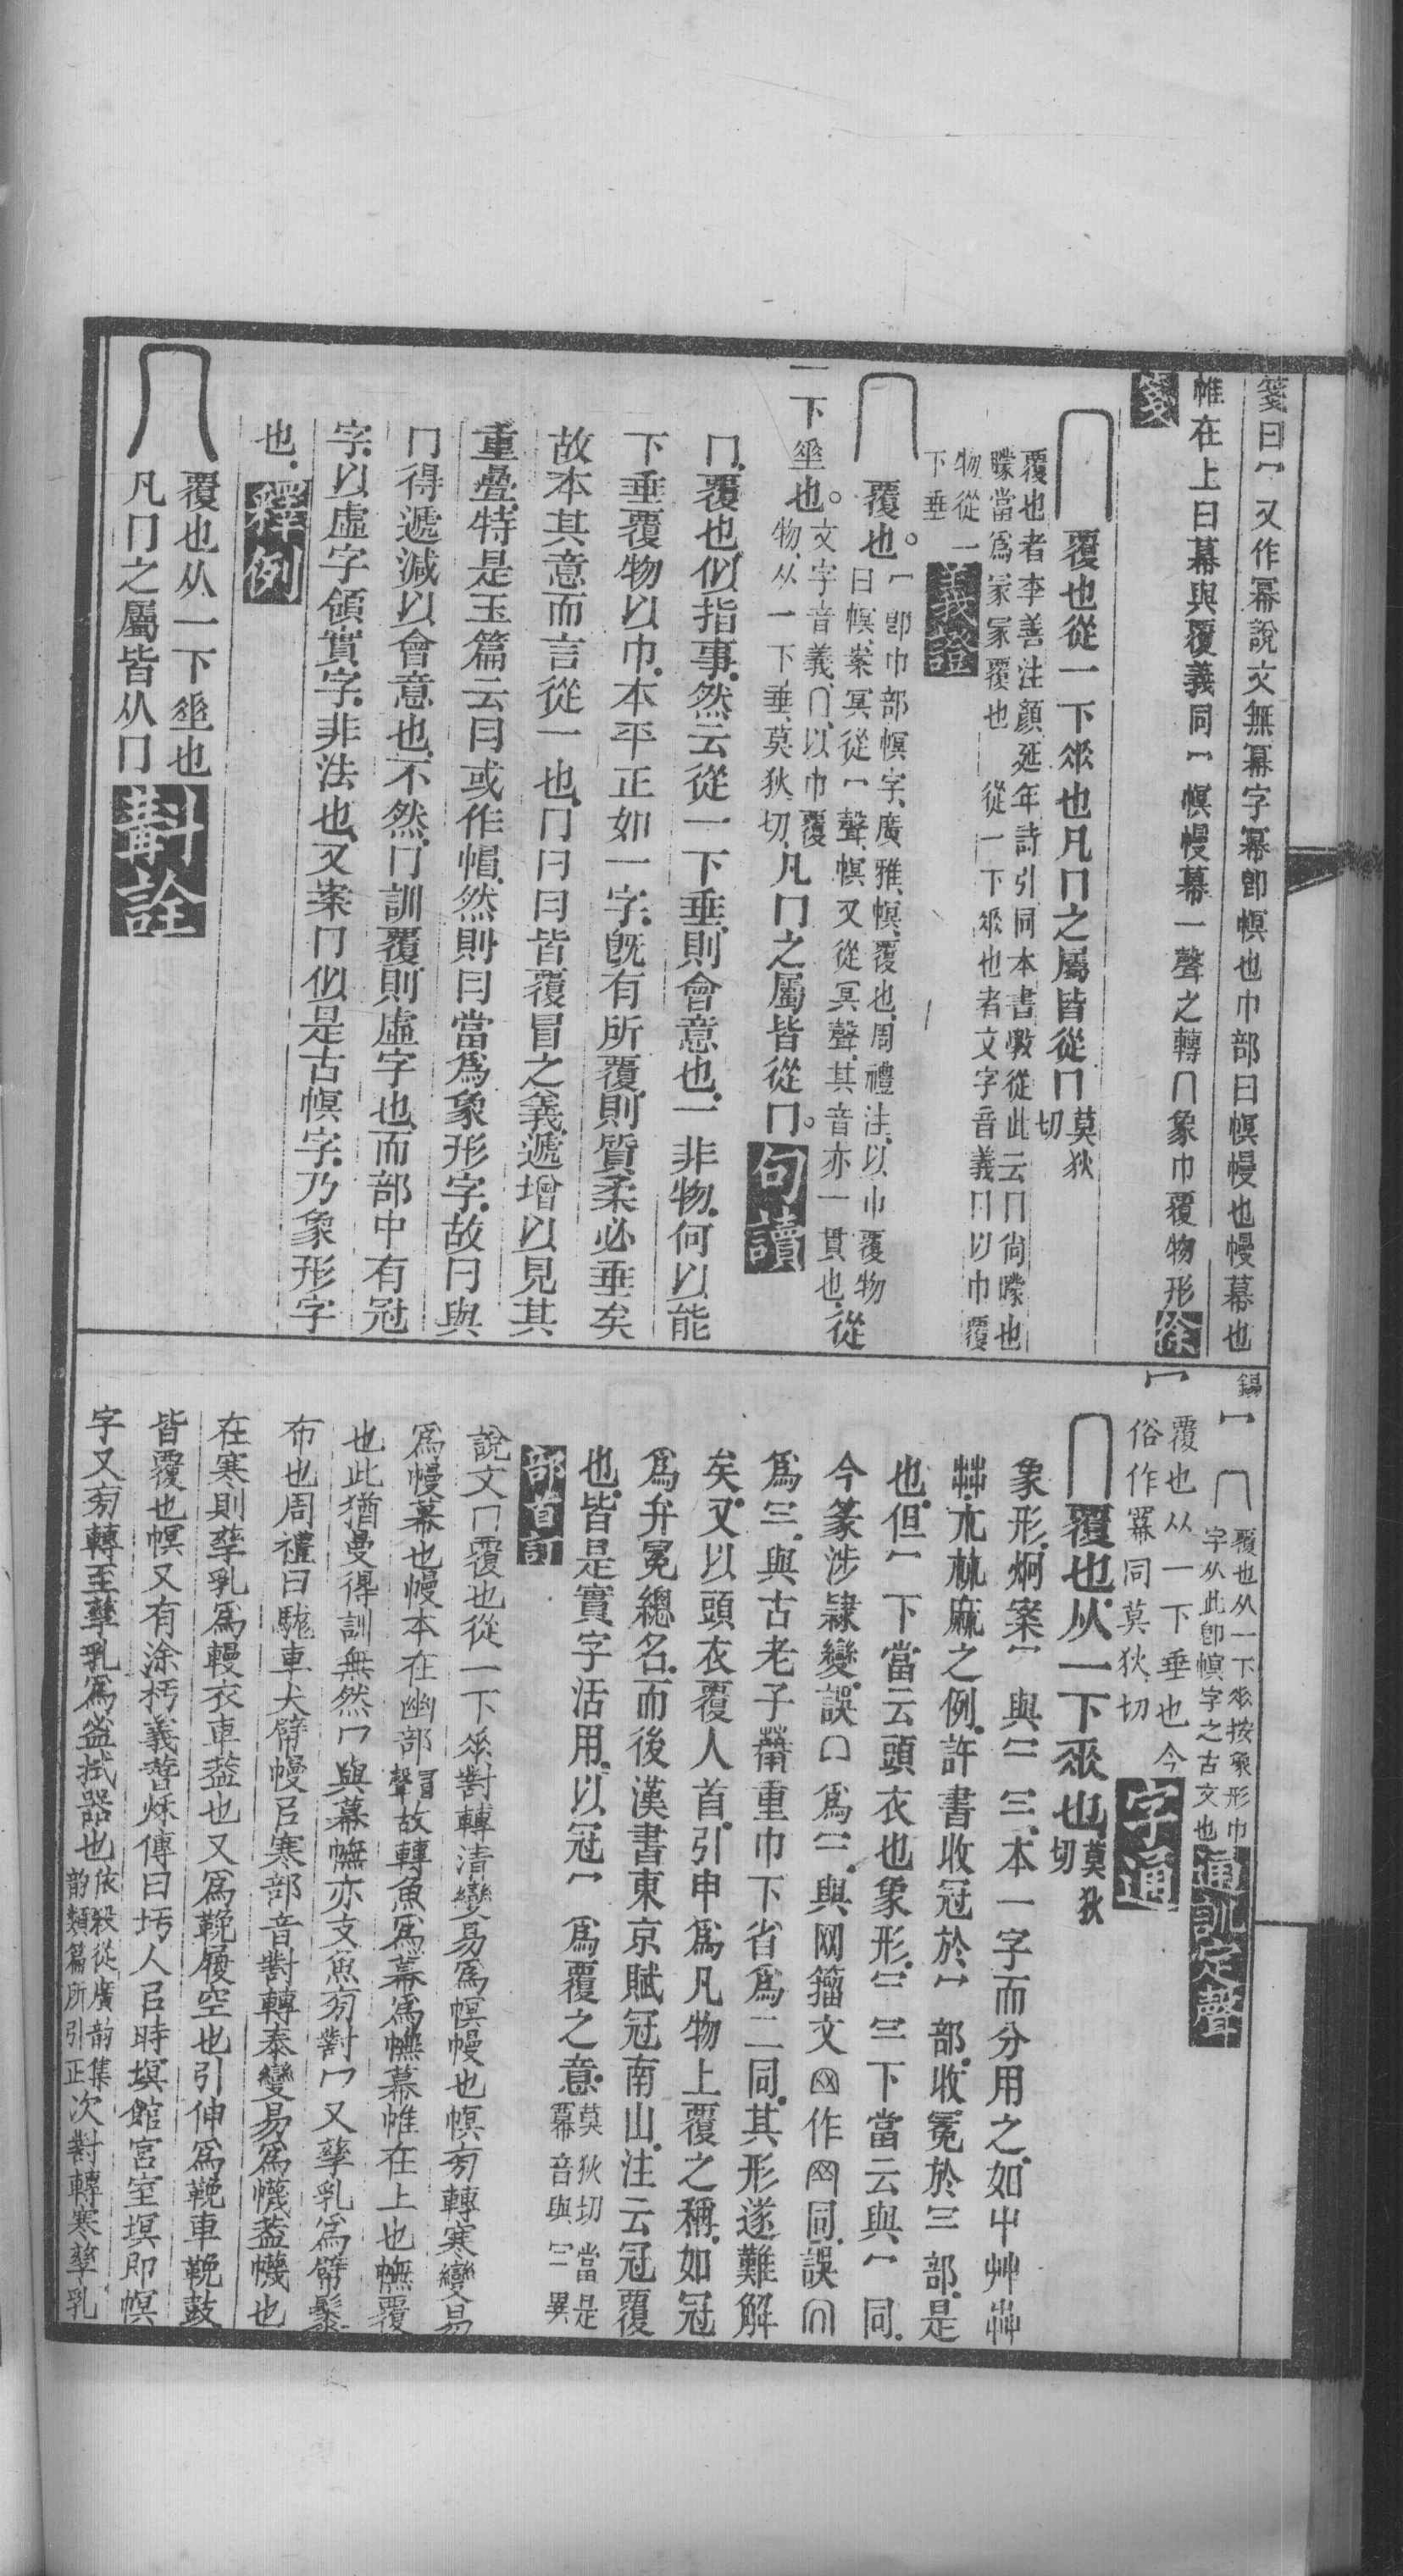 箋曰冖又作冪說文無冪字冪卽幎也巾部曰幎幔也幔幕也
帷在上曰幕與覆義同冖幎幔幕一聲之轉冂象巾覆物形徐
箋
冂覆也從一下𠂹也凡冖之屬皆從冖莫狄
切
覆也者李善注顏延年詩引同本書㪅從此云冖尙曚也
曚當爲冡冡覆也　從一下𠂹也者文字音義冂以巾覆
物從一
下垂義證
冂覆也。冖卽巾部幎字、廣雅、幎、覆也、周禮注、以巾覆物
曰幎、案冥從冖聲、幎又從冥聲、其音亦一貫也、從
一下𠂹也。文字音義、冂、以巾覆
物、从一下垂、莫狄切、凡冖之屬皆從冖。句讀
冖覆也似指事然云從一下垂則會意也一非物何以能
下垂覆物以巾本平正如一字旣有所覆則質柔必垂矣
故本其意而言從一也冖冃曰皆覆冒之義遞增以見其
重疊特是玉篇云冃或作帽然則冃當爲象形字故冃與
冖得遞減以會意也不然冖訓覆則虛字也而部中有冠
字以虛字領實字非法也又案冖似是古幎字乃象形字
也釋例
冂覆也从一下𠂹也
凡冖之屬皆从冖斠詮
錫冖冂覆也从一下𠂹按象形巾
字从此卽幎字之古文也通訓定聲
冖覆也从一下垂也今
俗作冪同莫狄切字通
冂覆也从一下𠂹也莫狄
切
象形炯案冖與冃本一字而分用之如屮艸茻
𣏟麻之例許書收冠於冖部收冕於冃部是
也但冖下當云頭衣也象形冃下當云與冖同
今篆涉隸變誤冂爲与网籀文作同誤
爲與古老子重巾下省爲二同其形遂難解
矣又以頭衣覆人首引申爲凡物上覆之稱如冠
爲弁冕總名而後漢書東京賦冠南山注云冠覆
也皆是實字活用以冠冖爲覆之意莫狄切當是
冪音與冃異
部首訂
說文冖覆也從一下𠂹對轉清變易爲幎幔也幎旁轉寒變易
爲幔幕也幔本在幽部冒聲故轉魚爲幕爲幠幕帷在上也幠覆
也此猶曼得訓無然冖與幕幠亦支魚旁對冖又孳乳爲幦鬃
布也周禮曰駹車犬幦幔㠯寒部音對轉泰變易爲幭蓋幭也
在寒則孳乳爲䡬衣車蓋也又爲鞔履空也引伸爲鞔車鞔鼓
皆覆也幎又有涂杇義傳曰圬人㠯時塓館宮室塓卽幎
字又旁轉至孳乳爲𥁑拭器也依段從廣韵集
韵類篇所引正次對轉寒孳乳